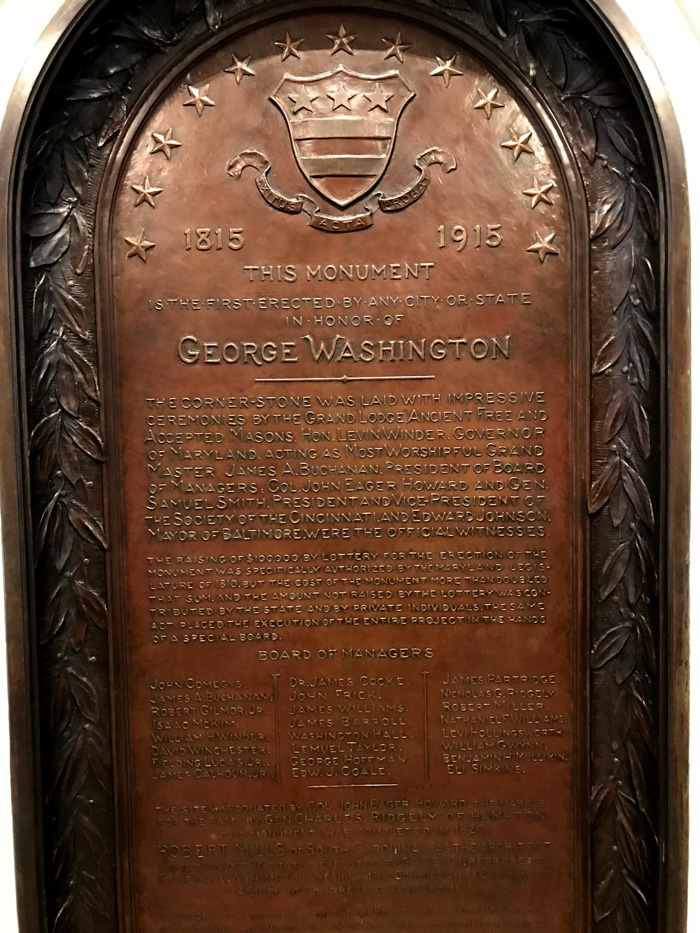 EXITUS ACTA PROBAT
1815 1915
THIS MONUMENT
IS·THE·FIRST·ERECTED·BY·ANY·CITY·OR·STATE
IN·HONOR·OF
GEORGE WASHINGTON
THE CORNER-STONE WAS LAID WITH IMPRESSIVE
CEREMONIES BY THE GRAND LODGE, ANCIENT FREE AND
ACCEPTED MASONS, HON. LEVIN WINDER, GOVERNOR
OF MARYLAND, ACTING AS MOST WORSHIPFUL GRAND
MASTER. JAMES A. BUCHANAN, PRESIDENT OF BOARD
OF MANAGERS; COL. JOHN EAGER HOWARD AND GEN.
SAMUEL SMITH, PRESIDENT AND VICE-PRESIDENT OF
THE SOCIETY OF THE CINCINNATI, AND EDWARD JOHNSON,
MAYOR OF BALTIMORE, WERE THE OFFICIAL WITNESSES.
THE RAISING OF $100000 BY LOTTERY FOR THE ERECTION OF THE
MONUMENT WAS SPECIFICALLY AUTHORIZED BY THE MARYLAND LEGIS-
LATURE OF 1810, BUT THE COST OF THE MONUMENT MORE THAN DOUBLED
THAT SUM, AND THE AMOUNT NOT RAISED BY THE LOTTERY WAS CON-
TRIBUTED BY THE STATE AND BY PRIVATE INDIVIDUALS. THE SAME
ACT PLACED THE EXECUTION OF THE ENTIRE PROJECT IN THE HANDS
OF A SPECIAL BOARD.
BOARD OF MANAGERS
JOHN COMEGYS,
JAMES A. BUCHANAN,
ROBERT GILMOR, JR.
ISAAC McKIM,
WILLIAM H. WINDER,
DAVID WINCHESTER,
FIELDING LUCAS, JR.,
JAMES CALHOUN, JR.,
DR. JAMES COCKE
JOHN FRICK,
JAMES WILLIAMS,
JAMES BARROLL
WASHINGTON HALL,
LEMUEL TAYLOR,
GEORGE HOFFMAN,
EDW. J. COALE,
JAMES PARTRIDGE
NICHOLAS G. RIDGELY,
ROBERT MILLER,
NATHANIEL F. WILLIAMS,
LEVI HOLLINGSWORTH,
WILLIAM GWYNN,
BENJAMIN H. MULLIKIN,
ELI SIMKINS,
THIS SITE WAS DONATED BY COL. JOHN EAGER HOWARD, THE MARBLE
FOR THE SAME BY GEN. CHARLES RIDGELY OF HAMPTON
THE MONUMENT WAS COMPLETED IN
ROBERT MILLS OF SOUTH CAROLINA WAS THE ARCHITECT